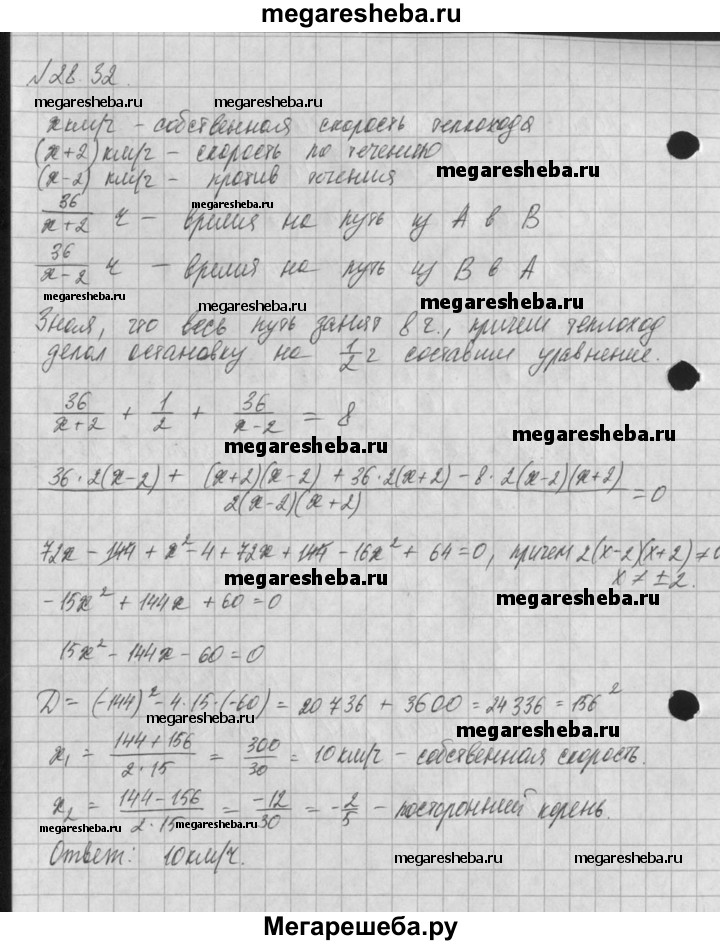 megaresheba.ru
№28.32.
megaresheba.ru megaresheba.ru megaresheba.ru
x км/ч - собственная скорость теплохода
(x+2) км/ч - скорость по течению
(x-2) км/ч - против течения
megaresheba.ru
36/(x+2) ч - время на путь из A в B
megaresheba.ru
36/(x-2) ч - время на путь из B в A
megaresheba.ru megaresheba.ru megaresheba.ru
Зная, что весь путь занят 8 ч., причем теплоход
делал остановку на 1/2 ч составим уравнение.
36/(x+2) + 1/2 + 36/(x-2) = 8
megaresheba.ru megaresheba.ru
(36·2(x-2) + (x+2)(x-2) + 36·2(x+2) - 8·2(x-2)(x+2))/(2(x-2)(x+2)) = 0
72x - 144 + x² - 4 + 72x + 144 - 16x² + 64 = 0, причем 2(x-2)(x+2) ≠ 0
x ≠ ±2.
megaresheba.ru megaresheba.ru
-15x² + 144x + 60 = 0
15x² - 144x - 60 = 0
D = (-144)² - 4·15·(-60) = 20736 + 3600 = 24336 = 156²
megaresheba.ru megaresheba.ru
x₁ = (144+156)/(2·15) = 300/30 = 10 км/ч - собственная скорость.
x₂ = (144-156)/(2·15) = -12/30 = -2/5 - посторонний корень.
megaresheba.ru megaresheba.ru megaresheba.ru
Ответ: 10 км/ч.
megaresheba.ru megaresheba.ru
Мегарешеба.ру